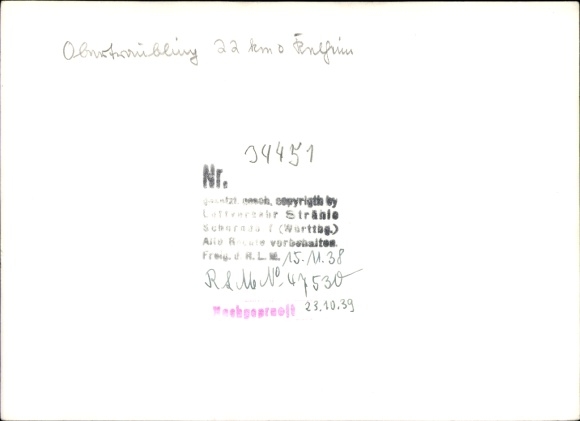 Obertraubling 22 km o Kelheim
34451
Nr.
gesetzl. gesch. copyrigth by
Luftverkehr Strähle
Schorndorf (Württbg.)
Alle Rechte vorbehalten.
Freig. d. R.L.M. 15.11.38
RLM No. 47530
Nachgeprüft 23.10.39